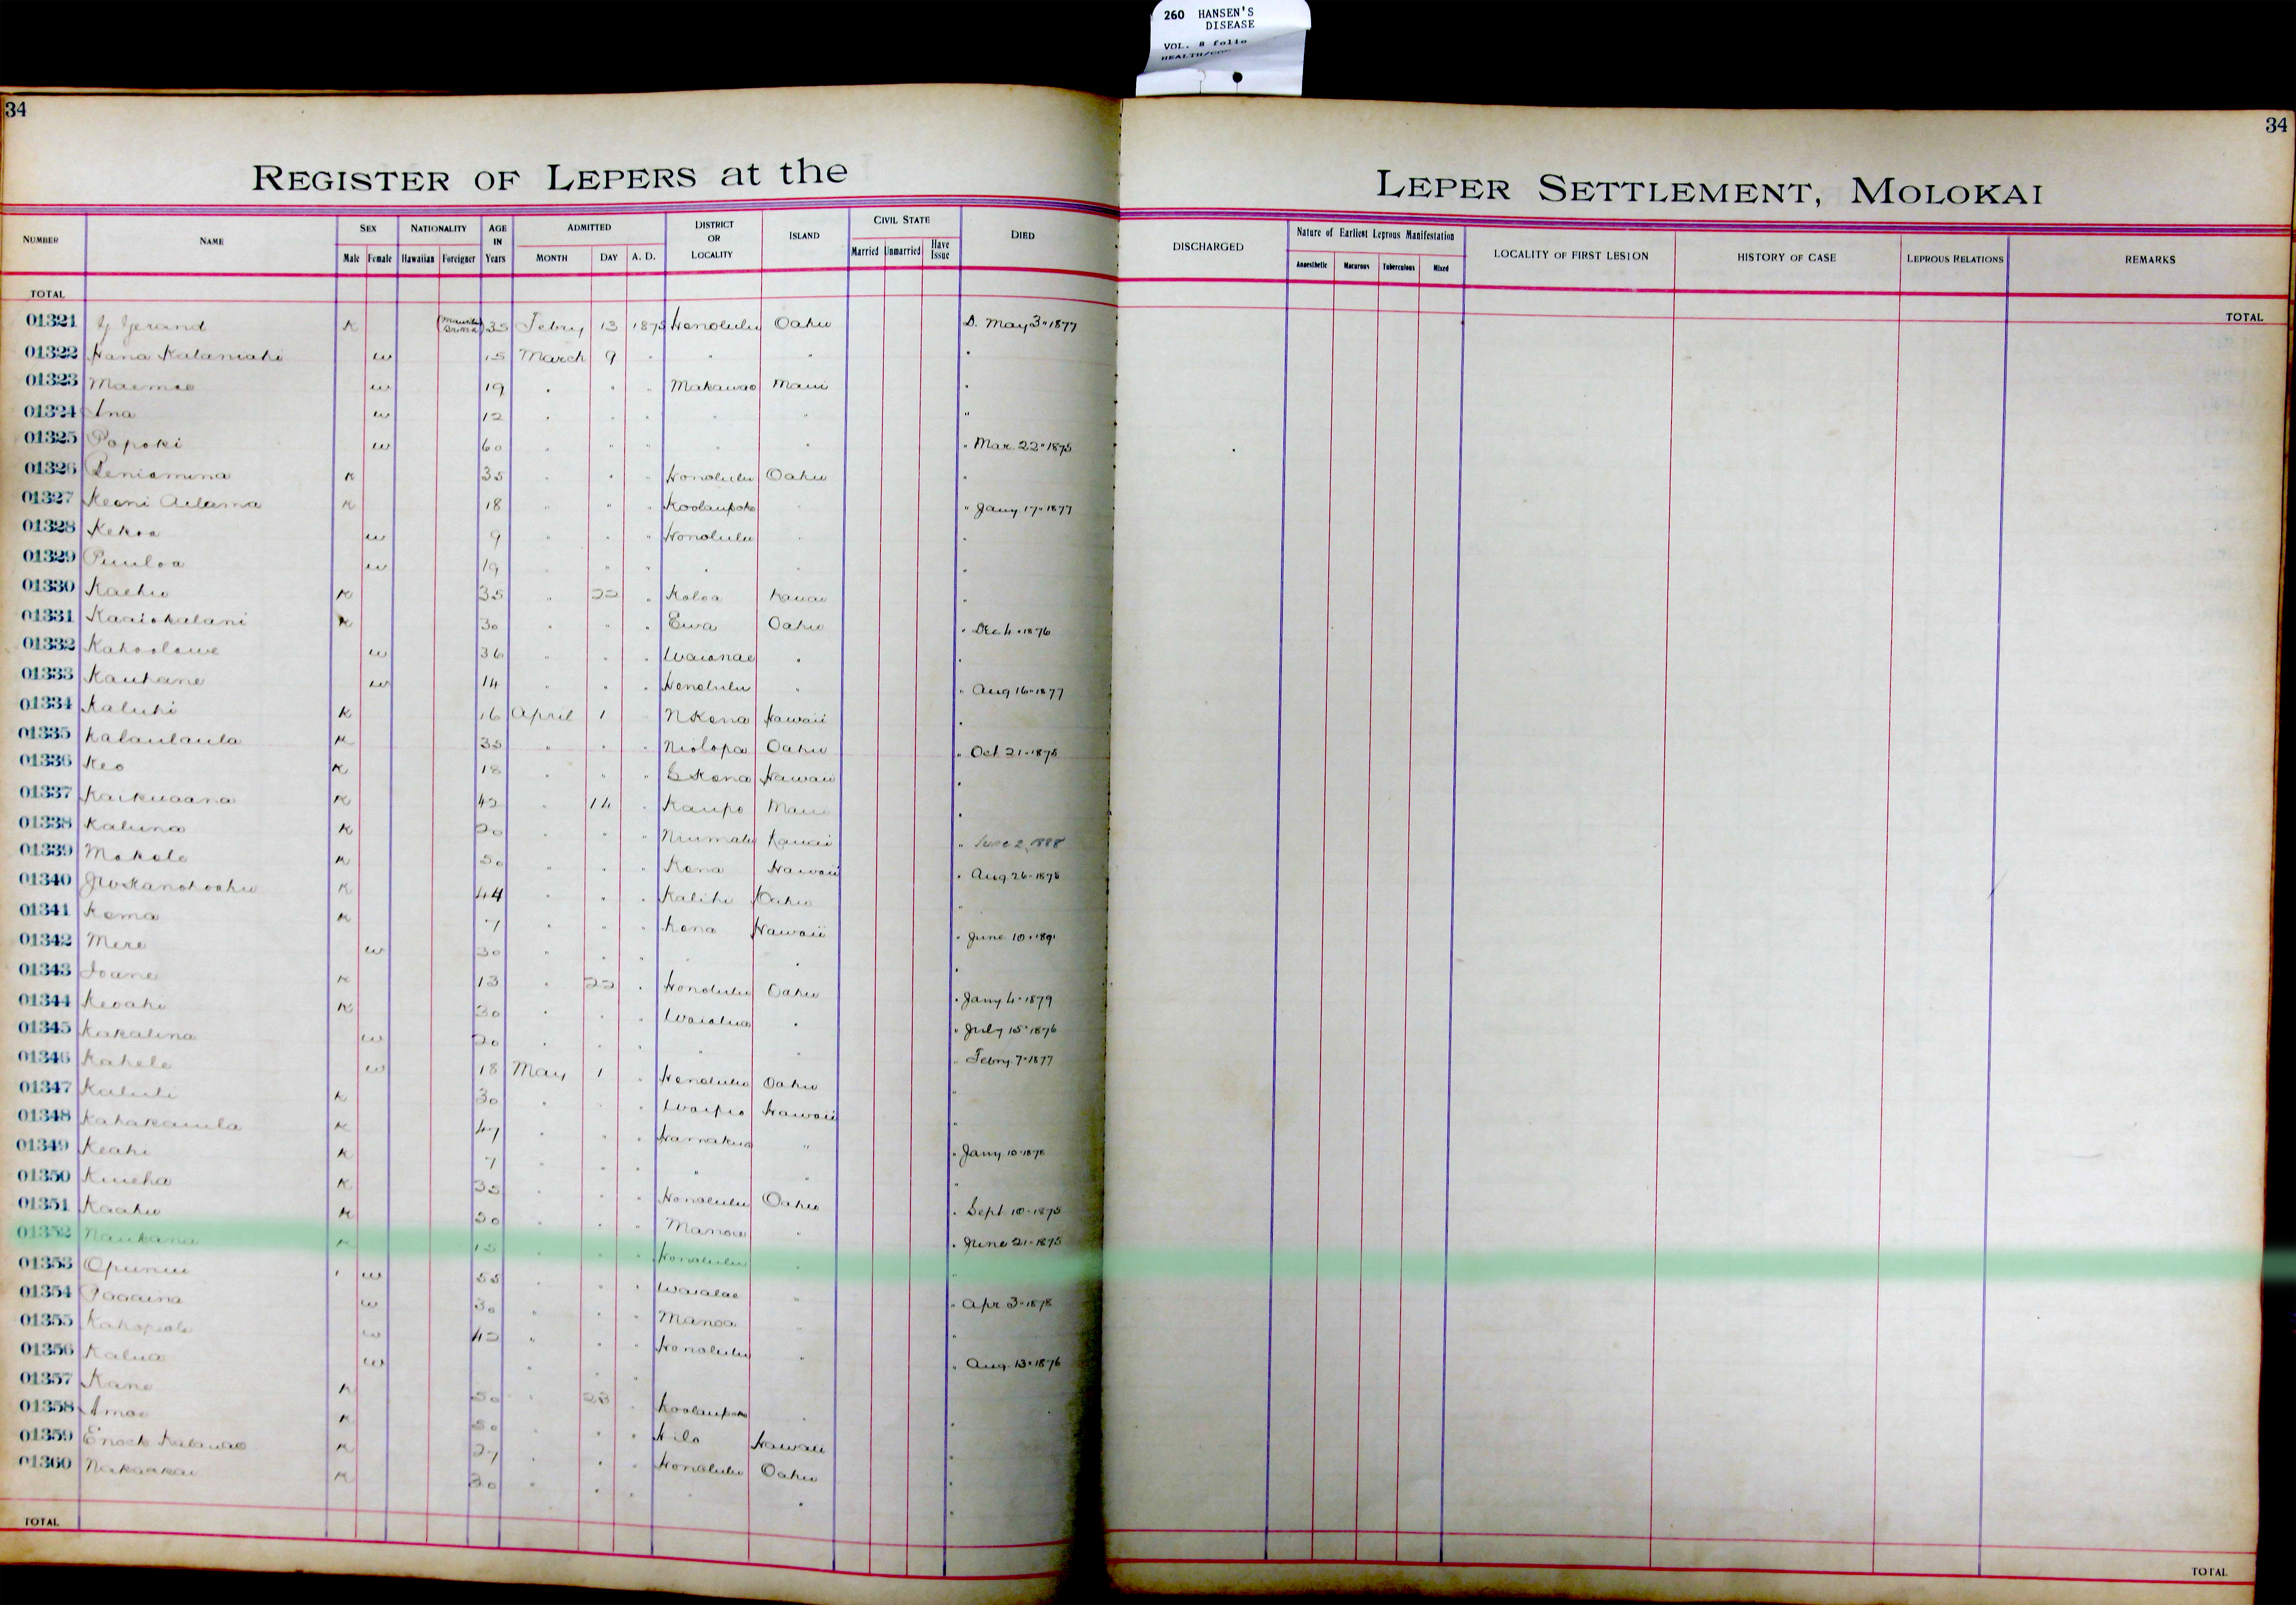 260 HANSEN'S
DISEASE
VOL. 8 folio
34
34
REGISTER OF LEPERS at the
LEPER SETTLEMENT, MOLOKAI
NUMBER NAME SEX Male Female NATIONALITY Hawaiian Foreigner AGE IN Years ADMITTED MONTH DAY A. D. DISTRICT OR LOCALITY ISLAND CIVIL STATE Married Unmarried Have Issue DIED
DISCHARGED Nature of Earliest Leprous Manifestation Anaesthetic Macurous Tuberculous Mixed LOCALITY OF FIRST LESION HISTORY OF CASE LEPROUS RELATIONS REMARKS
TOTAL
TOTAL
01321 K 35 Febry 13 1875 Honolulu Oahu D. May 3 " 1877
01322 Hana Kalaniahi w 15 March 9 " " " "
01323 Maemae w 19 " " " Makawao Maui "
01324 Ina w 12 " " " " " "
01325 Popoki w 60 " " " " " " Mar. 22 " 1875
01326 Peniamina K 35 " " " Honolulu Oahu "
01327 Keoni Adama K 18 " " " Koolaupoko " " Jany 17 " 1877
01328 Kekoa w 9 " " " Honolulu " "
01329 Puuloa w 19 " " " " " "
01330 Kaehu K 35 " 22 " Koloa Kauai "
01331 Kaaiokalani K 30 " " " Ewa Oahu " Dec 4 " 1876
01332 Kahoolawe w 36 " " " Waianae " "
01333 Kauhane w 14 " " " Honolulu " " Aug 16 " 1877
01334 Kaluhi K 16 April 1 " N Kona Hawaii "
01335 Kalaulaula K 35 " " " Niolopa Oahu " Oct 21 " 1875
01336 Keo K 18 " " " Kona Hawaii "
01337 Kaikuaana K 42 " 14 " Kaupo Maui "
01338 Kaluna K 20 " " " Niumalu Kauai " June 2, 1888
01339 Makole K 50 " " " Kona Hawaii " Aug 26 " 1878
01340 K 44 " " " Kalihi Oahu "
01341 Kema K 7 " " " Kona Hawaii " June 10 " 1891
01342 Mere w 30 " " " " " "
01343 Ioane K 13 " 22 " Honolulu Oahu " Jany 4 " 1879
01344 Keoahi K 30 " " " Waialua " " July 15 " 1876
01345 Kakalina w 20 " " " " " " Febry 7 " 1877
01346 Kahele w 18 May 1 " Honolulu Oahu "
01347 Kaluli K 30 " " " Waipio Hawaii "
01348 Kahakauila K 47 " " " Hamakua " " Jany 10 " 1878
01349 Keahi K 7 " " " " " "
01350 Kuueha K 35 " " " Honolulu Oahu " Sept 10 " 1875
01351 Kaahu K 50 " " " Manoa " " June 21 " 1875
01352 Naukana K 15 " " " Honolulu " "
01353 Opunui w 55 " " " Waialae " " Apr 3 " 1878
01354 Paaaina w 30 " " " Manoa " "
01355 w 42 " " " Honolulu " " Aug. 13 " 1876
01356 Kalua w " " "
01357 Kane K 50 " 28 " Koolaupoko " "
01358 Amoe K 50 " " " Hilo Hawaii "
01359 Enoch Kalauao K 27 " " " Honolulu Oahu "
01360 Nakaakai K 30 " " " " " "
TOTAL
TOTAL